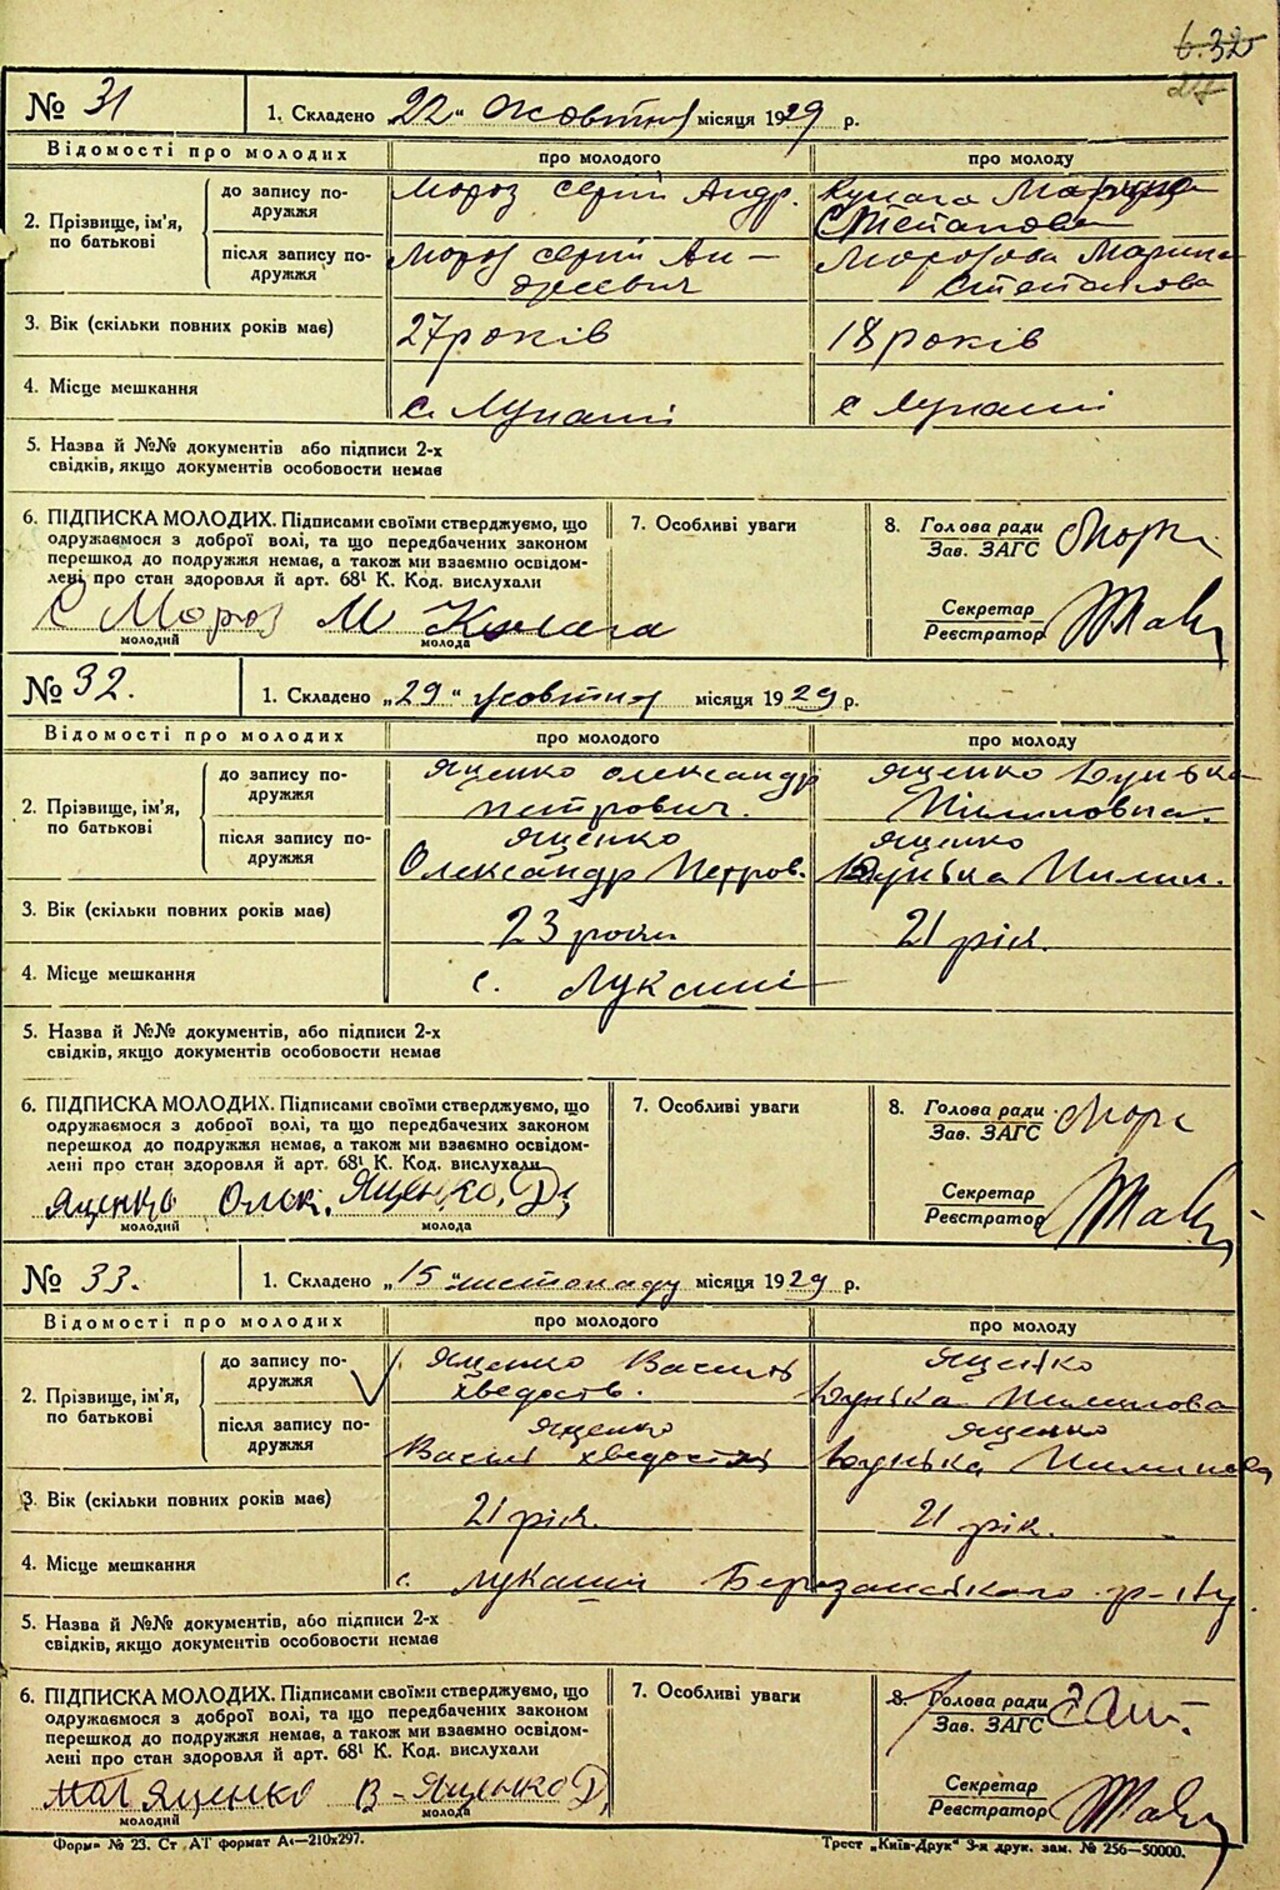 6.32
27
№ 31
1. Складено 22" Жовтня місяця 1929 р.
Відомості про молодих про молодого про молоду
2. Прізвище, ім'я, по батькові
до запису подружжя
Мороз Сергій Андр.
Кулага Марина
Степанова
після запису подружжя
Мороз Сергій Ан-
дреевич
Морозова Марина
Степанова
3. Вік (скільки повних років має) 27 років 18 років
4. Місце мешкання с. Лукаші с Лукаші
5. Назва й №№ документів або підписи 2-х
свідків, якщо документів особовости немає
6. ПІДПИСКА МОЛОДИХ. Підписами своїми стверджуємо, що
одружаємося з доброї волі, та що передбачених законом
перешкод до подружжя немає, а також ми взаємно освідом-
лені про стан здоровля й арт. 68¹ К. Код. вислухали
С Мороз М Кулага
молодий молода
7. Особливі уваги
8. Голова ради
Зав. ЗАГС
Секретар
Реєстратор
№ 32.
1. Складено „29" жовтня місяця 1929 р.
Відомості про молодих про молодого про молоду
2. Прізвище, ім'я, по батькові
до запису подружжя
Яценко Олександр
Петрович.
Яценко Дунька
Пилиповна.
після запису подружжя
Яценко
Олександр Петров.
Яценко
Дунька Пилип.
3. Вік (скільки повних років має) 23 роки 21 рік.
4. Місце мешкання с. Лукаші
5. Назва й №№ документів, або підписи 2-х
свідків, якщо документів особовости немає
6. ПІДПИСКА МОЛОДИХ. Підписами своїми стверджуємо, що
одружаємося з доброї волі, та що передбачених законом
перешкод до подружжя немає, а також ми взаємно освідом-
лені про стан здоровля й арт. 68¹ К. Код. вислухали
Яценко Олек. Яценко, Д,
молодий молода
7. Особливі уваги
8. Голова ради
Зав. ЗАГС
Секретар
Реєстратор
№ 33.
1. Складено „15" листопаду місяця 1929 р.
Відомості про молодих про молодого про молоду
2. Прізвище, ім'я, по батькові
до запису подружжя
Яценко Василь
Хведоств.
Яценко
Дунька Пилипова
після запису подружжя
Яценко
Василь
Яценко
Дунька Пилипова
3. Вік (скільки повних років має) 21 рік. 21 рік.
4. Місце мешкання с. Лукаші Березанського р-ну.
5. Назва й №№ документів, або підписи 2-х
свідків, якщо документів особовости немає
6. ПІДПИСКА МОЛОДИХ. Підписами своїми стверджуємо, що
одружаємося з доброї волі, та що передбачених законом
перешкод до подружжя немає, а також ми взаємно освідом-
лені про стан здоровля й арт. 68¹ К. Код. вислухали
Яценко В - Яценко Д,
молодий молода
7. Особливі уваги
8. Голова ради
Зав. ЗАГС
Секретар
Реєстратор
Форма № 23. Ст „АТ формат А₄—210х297.
Трест „Київ-Друк" 3-я друк. зам. № 256—50000.